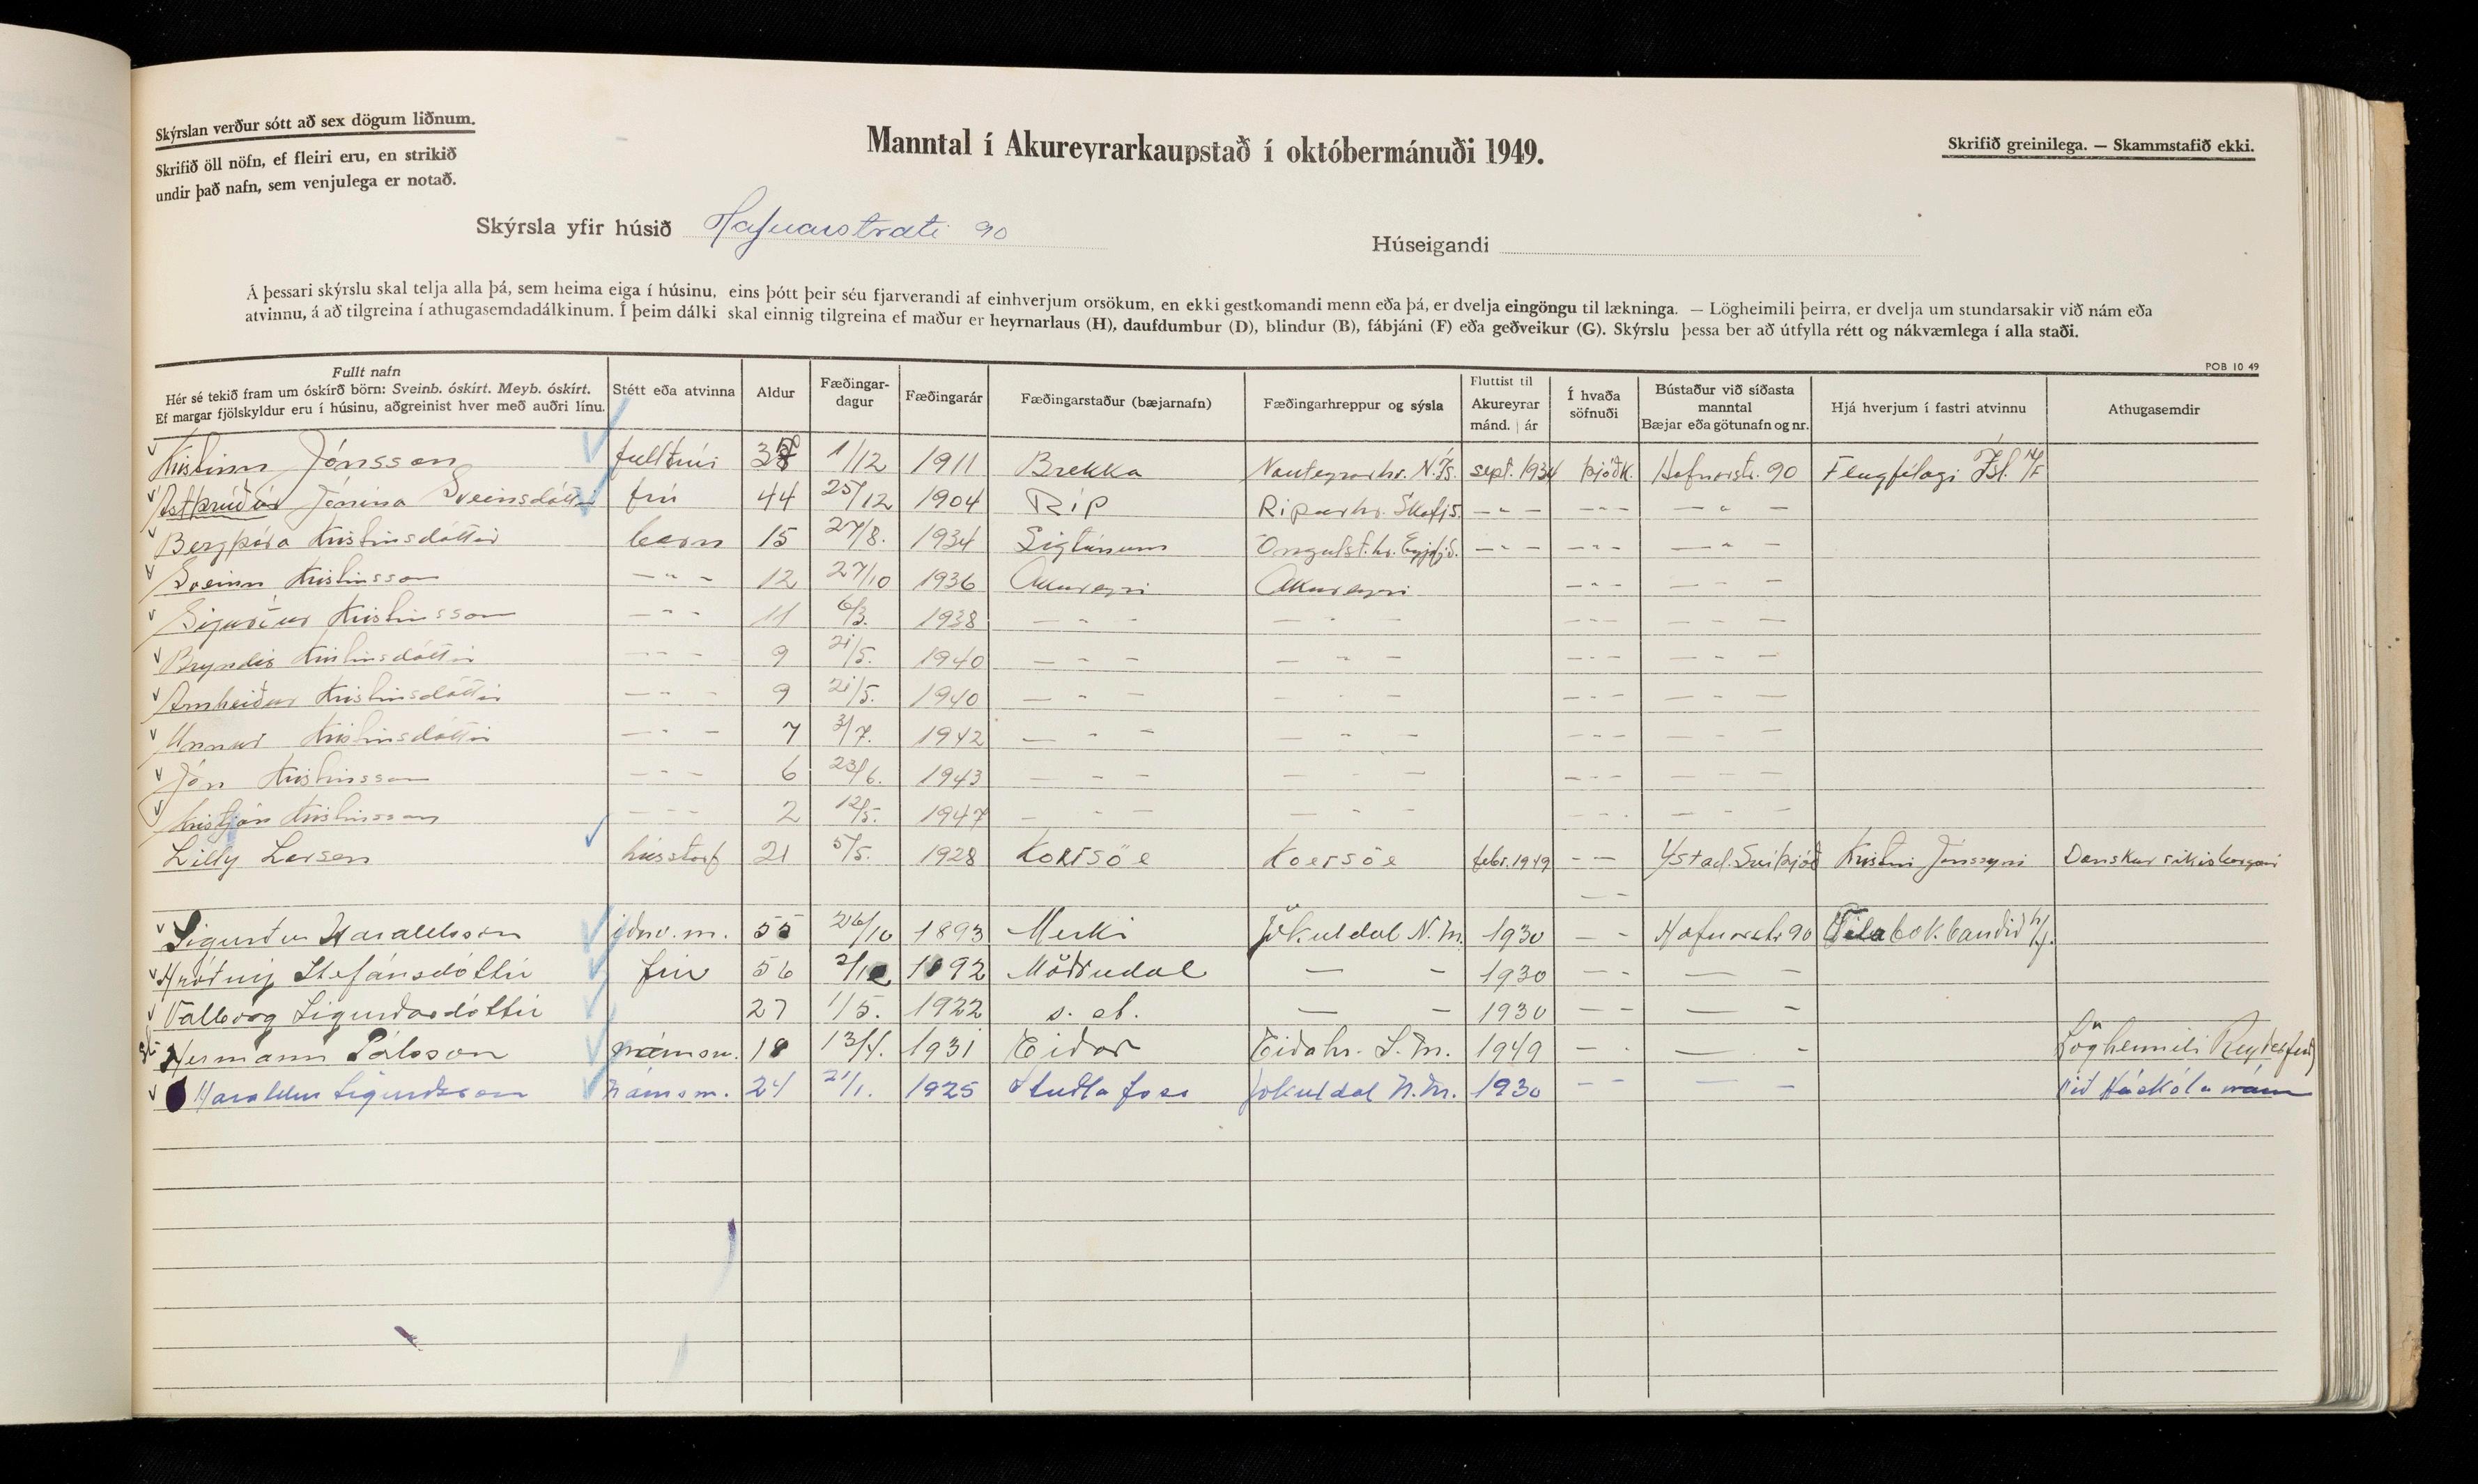 Skýrslan verður sótt að sex dögum liðnum.
Skrifið öll nöfn, ef fleiri eru, en strikið
undir það nafn, sem venjulega er notað.
Manntal í Akureyrarkaupstað í októbermánuði 1949.
Skrifið greinilega. — Skammstafið ekki.
Skýrsla yfir húsið Hafnarstræti 90
Húseigandi
Á þessari skýrslu skal telja alla þá, sem heima eiga í húsinu, eins þótt þeir séu fjarverandi af einhverjum orsökum, en ekki gestkomandi menn eða þá, er dvelja eingöngu til lækninga. — Lögheimili þeirra, er dvelja um stundarsakir við nám eða
atvinnu, á að tilgreina í athugasemdadálkinum. Í þeim dálki skal einnig tilgreina ef maður er heyrnarlaus (H), daufdumbur (D), blindur (B), fábjáni (F) eða geðveikur (G). Skýrslu þessa ber að útfylla rétt og nákvæmlega í alla staði.
POB 10 49
Fullt nafn
Hér sé tekið fram um óskírð börn: Sveinb. óskírt. Meyb. óskírt.
Ef margar fjölskyldur eru í húsinu, aðgreinist hver með auðri línu.
Stétt eða atvinna
Aldur
Fæðingar-
dagur
Fæðingarár
Fæðingarstaður (bæjarnafn)
Fæðingarhreppur og sýsla
Fluttist til
Akureyrar
mánd. | ár
Í hvaða
söfnuði
Bústaður við síðasta
manntal
Bæjar eða götunafn og nr.
Hjá hverjum í fastri atvinnu
Athugasemdir
Kristinn Jónsson fulltrúi 1/12 1911 Brekka Nauteyrarhr. N.Ís. sept. 1934 þjóðk. Hafnarstr. 90 Flugfélagi Ísl. H/F
Astþrúður Jónína Sveinsdóttir frú 44 25/12 1904 Ríp Ripurhr. Skafjs. — " — — " — — " —
Bergþóra Kristinsdóttir barn 15 27/8. 1934 Sigtúnum Öngulst.hr. Eyjfjs. — " — — " — — " —
Sveinn Kristinsson — " — 12 27/10 1936 Akureyri Akureyri — " — — " —
Sigurður Kristinsson — " — 11 6/3. 1938 — " — — " — — " — — " —
Bryndís Kristinsdóttir — " — 9 21/5. 1940 — " — — " — — " — — " —
Arnheiður Kristinsdóttir — " — 9 21/5. 1940 — " — — " — — " — — " —
Unnur Kristinsdóttir — " — 7 3/7. 1942 — " — — " — — " — — " —
Jón Kristinsson — " — 6 23/6. 1943 — " — — " — — " — — " —
Kristján Kristinsson — " — 2 12/5. 1947 — " — — " — — " — — " —
Lilly Larsen hússtarf 21 5/5. 1928 Korsöe Koersöe febr. 1949 — — Ystad. Svíþjóð Kristni Jónssyni Danskur ríkisborgari
— —
Sigurður Haraldsson iðnv.m. 55 26/10 1893 Merki Jökuldal N.M. 1930 — — Hafnarstr. 90
Hróðný Stefánsdóttir frú 56 1892 Möðrudal — — 1930 — — — —
Valborg Sigurðardóttir 27 1/5. 1922 s. st. — — 1930 — — — —
Hermann Pálsson námsm. 18 13/4. 1931 Eiðar Eiðahr. S.M. 1949 — — — — Lögheimili Reyðarfirði
Haraldur Sigurðsson námsm. 24 21/1. 1925 Stuðlafoss Jökuldal N.M. 1930 — — — — við Háskóla nám